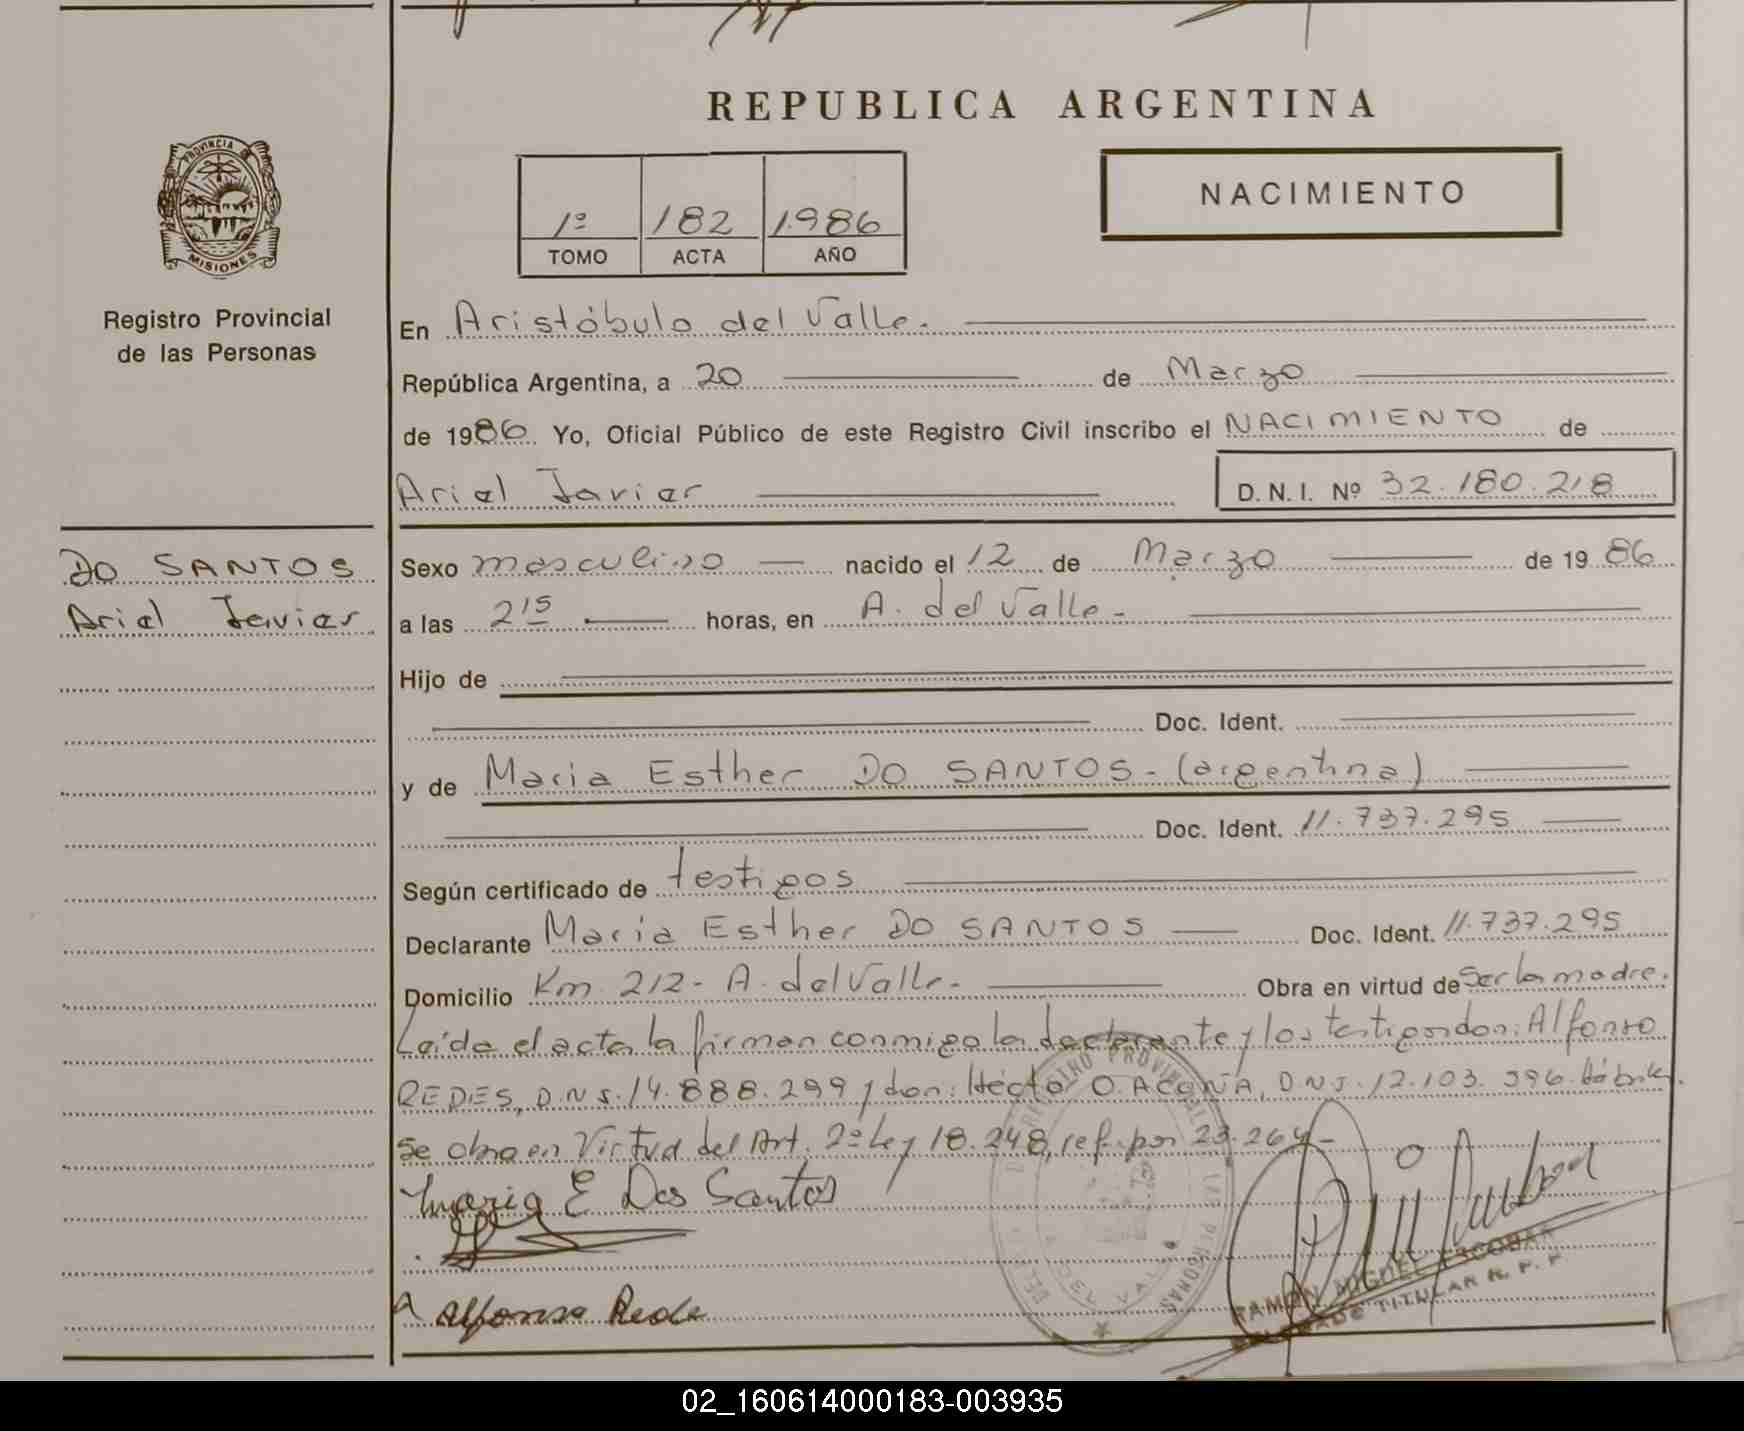 REPUBLICA ARGENTINA
PROVINCIA DE
MISIONES
Registro Provincial
de las Personas
1º 182 1986
TOMO ACTA AÑO
NACIMIENTO
En Aristóbulo del Valle.
República Argentina, a 20 de Marzo
de 1986 Yo, Oficial Público de este Registro Civil inscribo el NACIMIENTO de
Ariel Javier D.N.I. Nº 32.180.218
DO SANTOS
Ariel Javier
Sexo masculino nacido el 12 de Marzo de 1986
a las 2 15 horas, en A. del Valle-
Hijo de
Doc. Ident.
y de Maria Esther DO SANTOS-(argentina)
Doc. Ident. 11.737.295
Según certificado de testigos
Declarante Maria Esther DO SANTOS Doc. Ident. 11.737.295
Domicilio Km. 212- A. del Valle.- Obra en virtud de Ser la madre.
Leída el acta la firman conmigo la declarante y los testigos don: Alfonso
REDES, D.N.I. 14.888.299 y don: Héctor O. ACOÑA, D.N.I. 12.103.396. Hábiles.
Se obra en Virtud del Art. 2º Ley 18.248, ref. por 23.264-
Maria E Dos Santos
Alfonso Rede
RAMON MIGUEL ESCOBAR
TITULAR R. P. P.
02_160614000183-003935